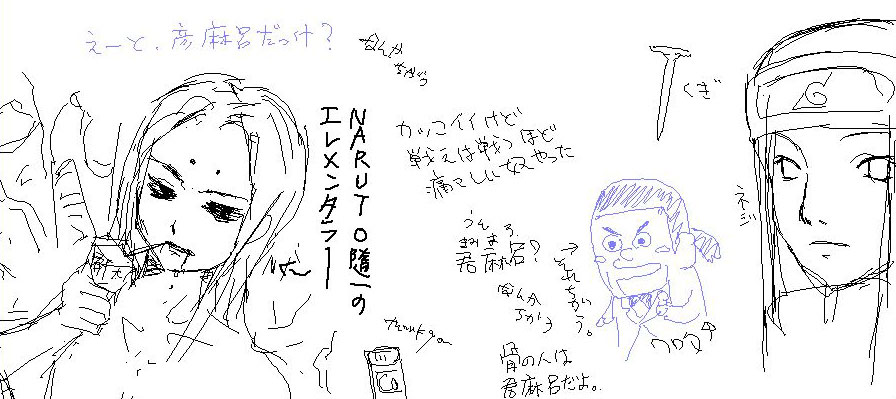 えーと、彦麻呂だっけ？
なんか
ちがう
くぎ
NARUTO随一の
エレメンタラー
カッコイイけど
戦えば戦うほど
痛々しい奴やった
ネジ
うん
きみまろ
君麻呂？
なんか
ちがう
→それちがう。
骨の人は
君麻呂だよ。